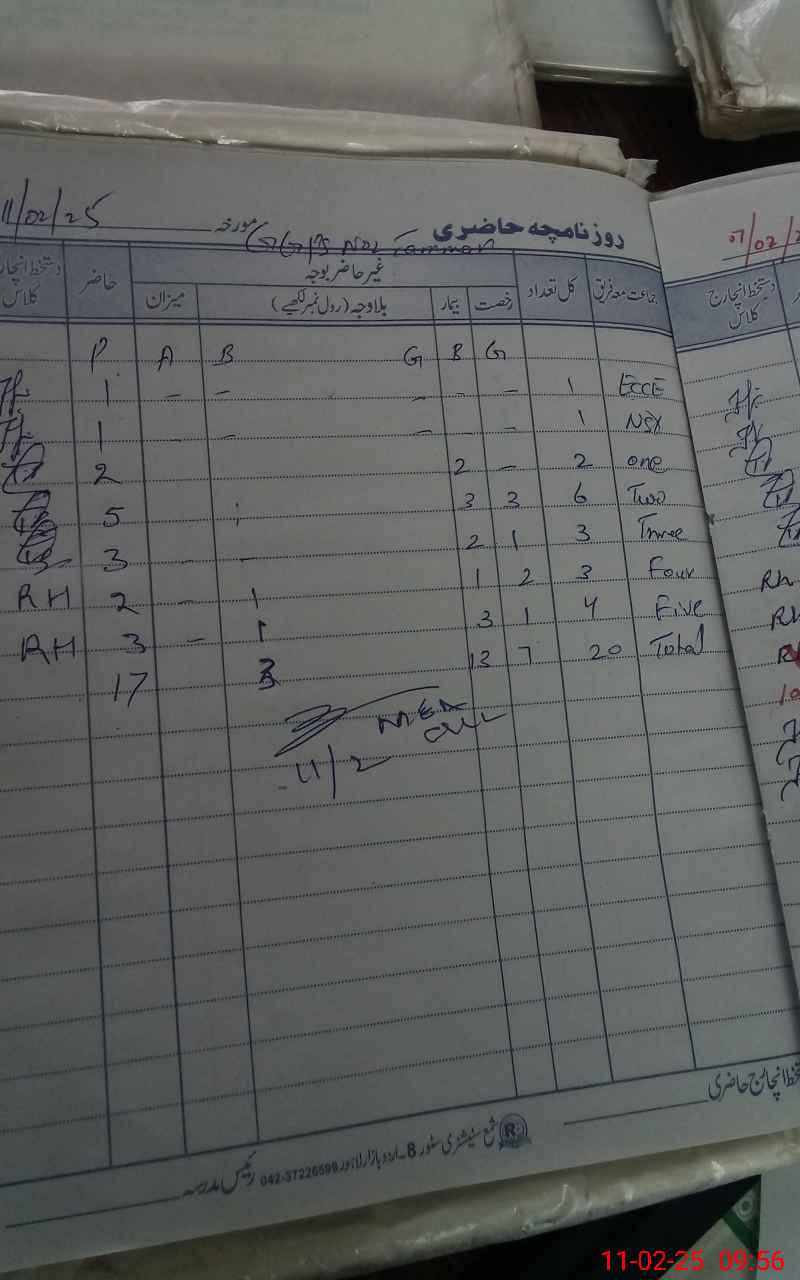 روزنامچہ حاضری GGPS NO2 Tamman مورخہ 11/02/25
جماعت معہ فریق کل تعداد غیر حاضر بوجہ حاضر دستخط انچارج کلاس
رخصت بیمار بلاوجہ (رول نمبر لکھیے) میزان
P A B G B G
1 - - - - 1 ECCE
1 - - - 1
2 2 - 2 one
5 3 3 6 Two
3 - 2 1 3 Three
RH 2 - 1 1 2 3 Four
RH 3 - 1 3 1 4 Five
17 13 7 20 Total
MEA
11/2
07/02/2
دستخط انچارج کلاس
Rh
دستخط انچارج حاضری
شمع سٹیشنری سٹور 8۔اردو بازار لاہور 042-37226599
رئیس مدرسہ
R
11-02-25 09:56